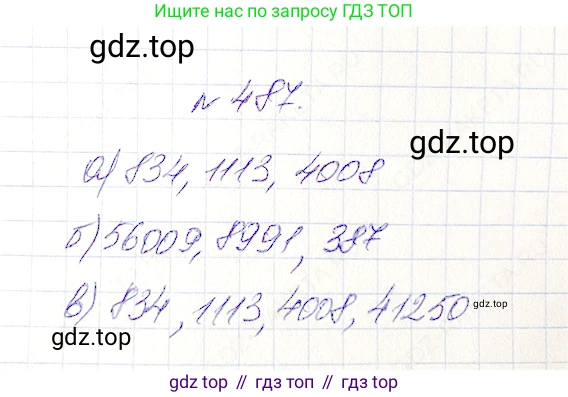 Ищите нас по запросу ГДЗ ТОП
gdz.top
№ 487.
gdz.top
а) 834, 1113, 4008
б) 56009, 8991, 387
в) 834, 1113, 4008, 41250
gdz.top
gdz.top
gdz.top // гдз топ // гдз.top